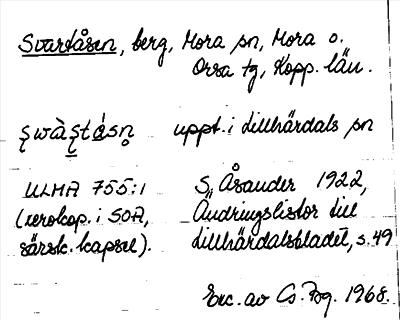 Svartåsen, berg, Mora sn, Mora o.
Orsa tg, Kopp. län.
uppt. i Lillhärdals sn
ULMA 755:1 S. Åsander 1922,
(xerokop. i SOA, Ändringslistor till
särsk. kapsel). Lillhärdalsbladet, s. 49
Exc. av 1968.